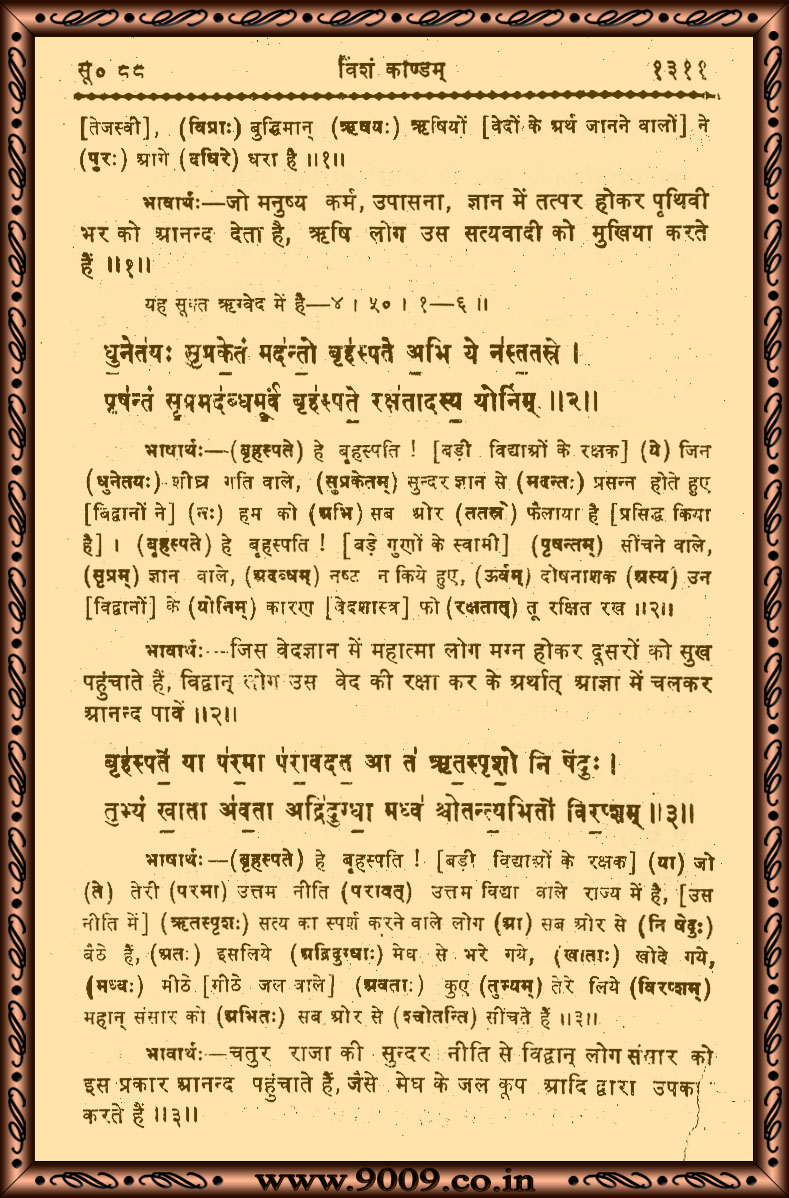 सू० ८८ विंशं काण्डम् १३११
[तेजस्वी], (विप्राः) बुद्धिमान् (ऋषयः) ऋषियों [वेदों के अर्थ जानने वालों] ने
(पुरः) आगे (दधिरे) धरा है ॥१॥
भावार्थः—जो मनुष्य कर्म, उपासना, ज्ञान में तत्पर होकर पृथिवी
भर को आनन्द देता है, ऋषि लोग उस सत्यवादी को मुखिया करते
हैं ॥१॥
यह सूक्त ऋग्वेद में है—४ । ५० । १—६ ॥
धु॒नेत॑यः सुप्रके॒तं मद॑न्तो॒ बृह॑स्पते अ॒भि ये न॑स्तत॒स्रे ।
पृष॑न्तं सृ॒प्रमद॑ब्धमू॒र्वं बृह॑स्पते॒ रक्ष॑तादस्य॒ योनि॑म् ॥२॥
भावार्थः—(बृहस्पते) हे बृहस्पति ! [बड़ी विद्याओं के रक्षक] (ये) जिन
(धुनेतयः) शीघ्र गति वाले, (सुप्रकेतम्) सुन्दर ज्ञान से (मदन्तः) प्रसन्न होते हुए
[विद्वानों ने] (नः) हम को (अभि) सब ओर (ततस्रे) फैलाया है [प्रसिद्ध किया
है] । (बृहस्पते) हे बृहस्पति ! [बड़े गुणों के स्वामी] (पृषन्तम्) सींचने वाले,
(सृप्रम्) ज्ञान वाले, (अदब्धम्) नष्ट न किये हुए, (ऊर्वम्) दोषनाशक (अस्य) उन
[विद्वानों] के (योनिम्) कारण [वेदशास्त्र] को (रक्षतात्) तू रक्षित रख ॥२॥
भावार्थः—जिस वेदज्ञान में महात्मा लोग मग्न होकर दूसरों को सुख
पहुंचाते हैं, विद्वान् लोग उस वेद की रक्षा कर के अर्थात् आज्ञा में चलकर
आनन्द पावें ॥२॥
बृह॑स्पते॒ या प॑र॒मा प॑रा॒वदत॒ आ त॑ ऋत॒स्पृशो॒ नि षे॑दुः ।
तुभ्यं॑ खा॒ता अ॑व॒ता अद्रि॑दुग्धा॒ मध्व॑ श्चोतन्त्य॒भितो॑ विर॒प्शम् ॥३॥
भावार्थः—(बृहस्पते) हे बृहस्पति ! [बड़ी विद्याओं के रक्षक] (या) जो
(ते) तेरी (परमा) उत्तम नीति (परावत्) उत्तम विद्या वाले राज्य में है, [उस
नीति में] (ऋतस्पृशः) सत्य का स्पर्श करने वाले लोग (आ) सब ओर से (नि षेदुः)
बैठे हैं, (अतः) इसलिये (अद्रिदुग्धाः) मेघ से भरे गये, (खाताः) खोदे गये,
(मध्वः) मीठे [मीठे जल वाले] (अवताः) कुएं (तुभ्यम्) तेरे लिये (विरप्शम्)
महान् संसार को (अभितः) सब ओर से (श्चोतन्ति) सींचते हैं ॥३॥
भावार्थः—चतुर राजा की सुन्दर नीति से विद्वान् लोग संसार को
इस प्रकार आनन्द पहुंचाते हैं, जैसे मेघ के जल कूप आदि द्वारा उपका
करते हैं ॥३॥
www.9009.co.in